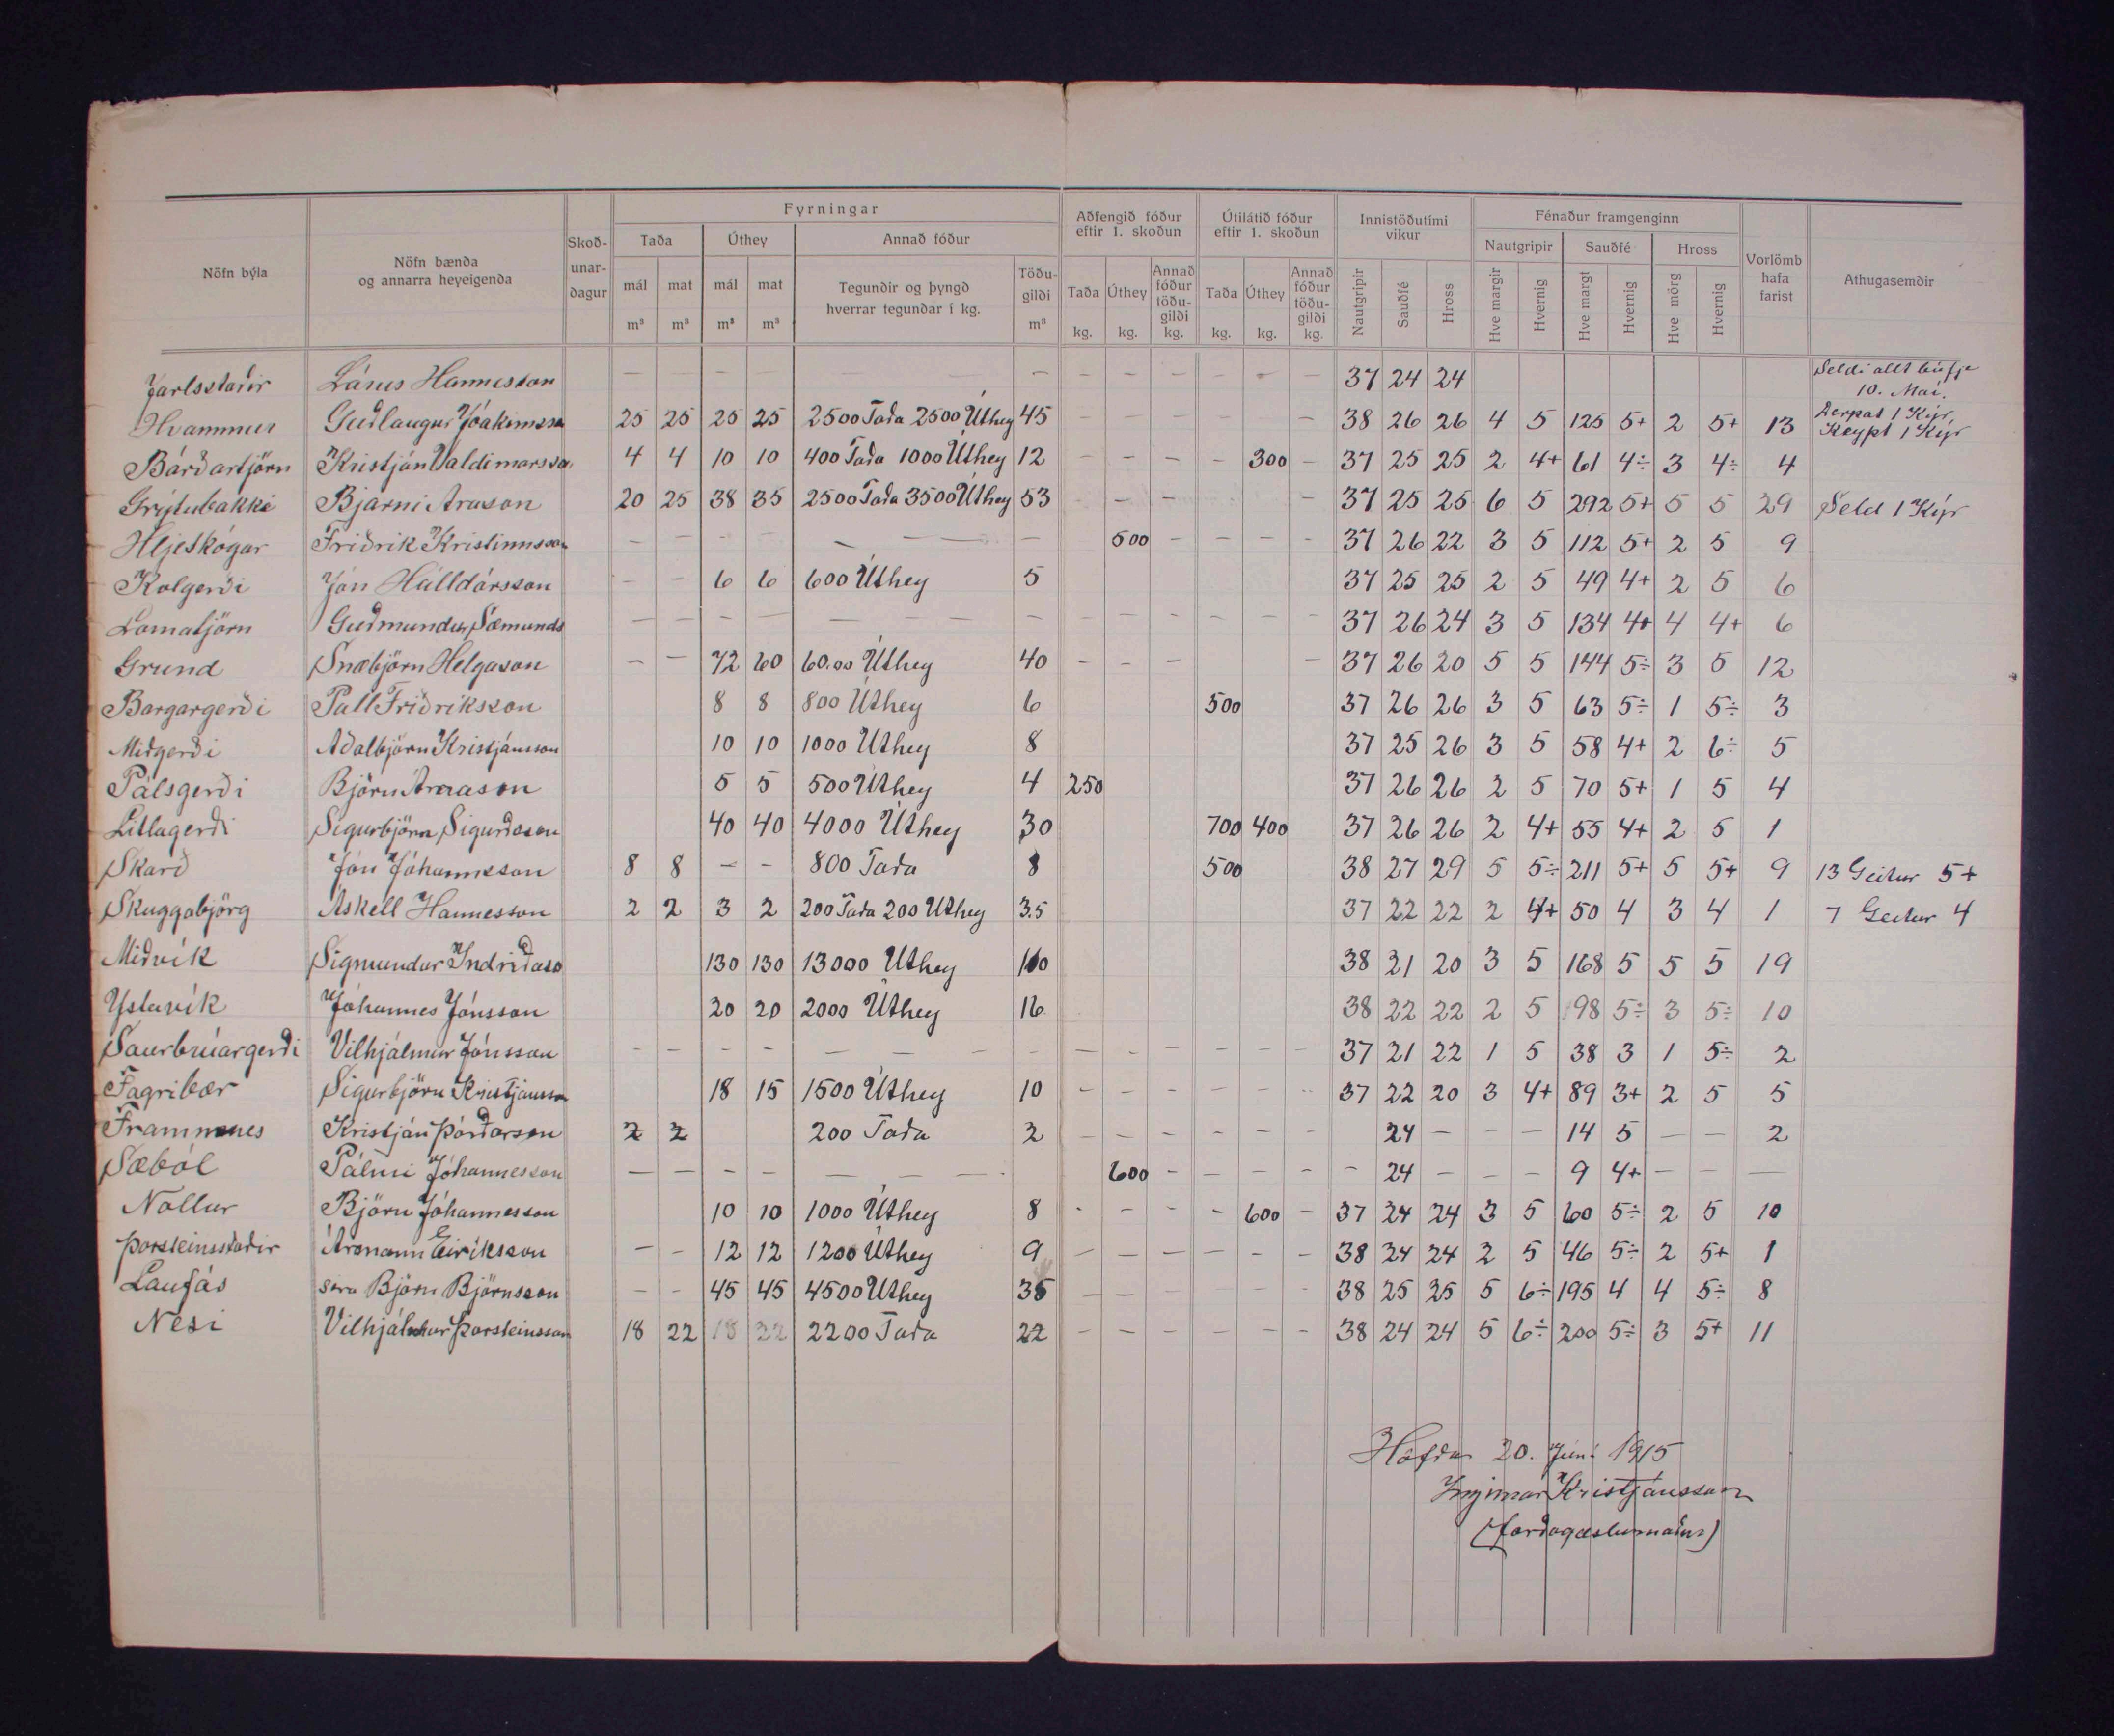 Fyrningar
Aðfengið fóður eftir 1. skoðun
Útilátið fóður eftir 1. skoðun
Innistöðutími vikur
Fénaður framgenginn
Nöfn býla
Nöfn bænda og annarra heyeigenda
Skoð-unar-dagur
Taða
Úthey
Annað fóður
Nautgripir
Sauðfé
Hross
Vorlömb hafa farist
Athugasemdir
mál m³ mat m³ mál m³ mat m³ Tegundir og þyngd hverrar tegundar í kg. Töðu-gildi m³ Taða kg. Úthey kg. Annað fóður töðu-gildi kg. Taða kg. Úthey kg. Annað fóður töðu-gildi kg. Nautgripir Sauðfé Hross Hve margir Hvernig Hve margt Hvernig Hve mörg Hvernig
Jarlsstaðir Lárus Hannesson — — — — — — — — — — — — 37 24 24 Seldi allt búfje 10. Maí.
Hvammur Guðlaugur Jóakimsso 25 25 25 25 2500 Taða 2500 Úthey 45 — — — — 38 26 26 4 5 125 5+ 2 5+ 13 Derpat 1 Kýr, Keypt 1 Kýr
Bárðartjörn Kristján Valdimarsso 4 4 10 10 400 Taða 1000 Úthey 12 — — — — 300 — 37 25 25 2 4+ 61 4÷ 3 4÷ 4
Grýtubakki Bjarni Arason 20 25 38 35 2500 Taða 3500 Úthey 53 — — — — 37 25 25 6 5 292 5+ 5 5 29 Seld 1 Kýr
Hljeskógar Friðrik Kristinnsson — — — — — — 500 — — — — 37 26 22 3 5 112 5+ 2 5 9
Kolgerði Jón Halldórsson — — 6 6 600 Úthey 5 37 25 25 2 5 49 4+ 2 5 6
Lomatjörn Guðmundur Sæmunds — — — — — — — — — — — — 37 26 24 3 5 134 4+ 4 4+ 6
Grund Snæbjörn Helgason — — 72 60 60.00 Úthey 40 — — — — 37 26 20 5 5 144 5÷ 3 5 12
Bargargerði Páll Friðriksson 8 8 800 Úthey 6 500 37 26 26 3 5 63 5÷ 1 5÷ 3
Miðgerði Aðalbjörn Kristjánsson 10 10 1000 Úthey 8 37 25 26 3 5 58 4+ 2 6÷ 5
Pálsgerði Björn Árnason 5 5 500 Úthey 4 250 37 26 26 2 5 70 5+ 1 5 4
Litlagerði Sigurbjörn Sigurðsson 40 40 4000 Úthey 30 700 400 37 26 26 2 4+ 55 4+ 2 5 1
Skarð Jón Jóhannesson 8 8 — — 800 Taða 8 500 38 27 29 5 5÷ 211 5+ 5 5+ 9 13 Geitur 5+
Skuggabjörg Áskell Hannesson 2 2 3 2 200 Taða 200 Úthey 3.5 37 22 22 2 4+ 50 4 3 4 1 7 Geitur 4
Miðvík Sigmundur Indriðaso 130 130 13000 Úthey 110 38 21 20 3 5 168 5 5 5 19
Ystuvík Jóhannes Jónsson 20 20 2000 Úthey 16 38 22 22 2 5 98 5÷ 3 5÷ 10
Saurbrúargerði Vilhjálmur Jónsson — — — — — — — — — — — — 37 21 22 1 5 38 3 1 5÷ 2
Fagribær Sigurbjörn Kristjánsson 18 15 1500 Úthey 10 — — — — — — 37 22 20 3 4+ 89 3+ 2 5 5
Frammnes Kristján Þórðarson 2 2 200 Taða 2 — — — — — — 24 — — — 14 5 — — 2
Sæból Pálmi Jóhannesson — — — — — — 600 — — — — — 24 — — — 9 4+ — — —
Nollur Björn Jóhannesson 10 10 1000 Úthey 8 - - - - 600 — 37 24 24 3 5 60 5÷ 2 5 10
Þorsteinsstaðir Aronann Eiríksson — — 12 12 1200 Úthey 9 — — — — — — 38 24 24 2 5 46 5÷ 2 5+ 1
Laufás séra Björn Björnsson — — 45 45 4500 Úthey 35 — — — — — — 38 25 25 5 6÷ 195 4 4 5÷ 8
Nesi Vilhjálmur Þorsteinsson 18 22 18 22 2200 Taða 22 — — — — — — 38 24 24 5 6÷ 200 5÷ 3 5+ 11
Höfða 20. Júní 1915
Ingimar Kristjánsson
(forðagæslumaður)